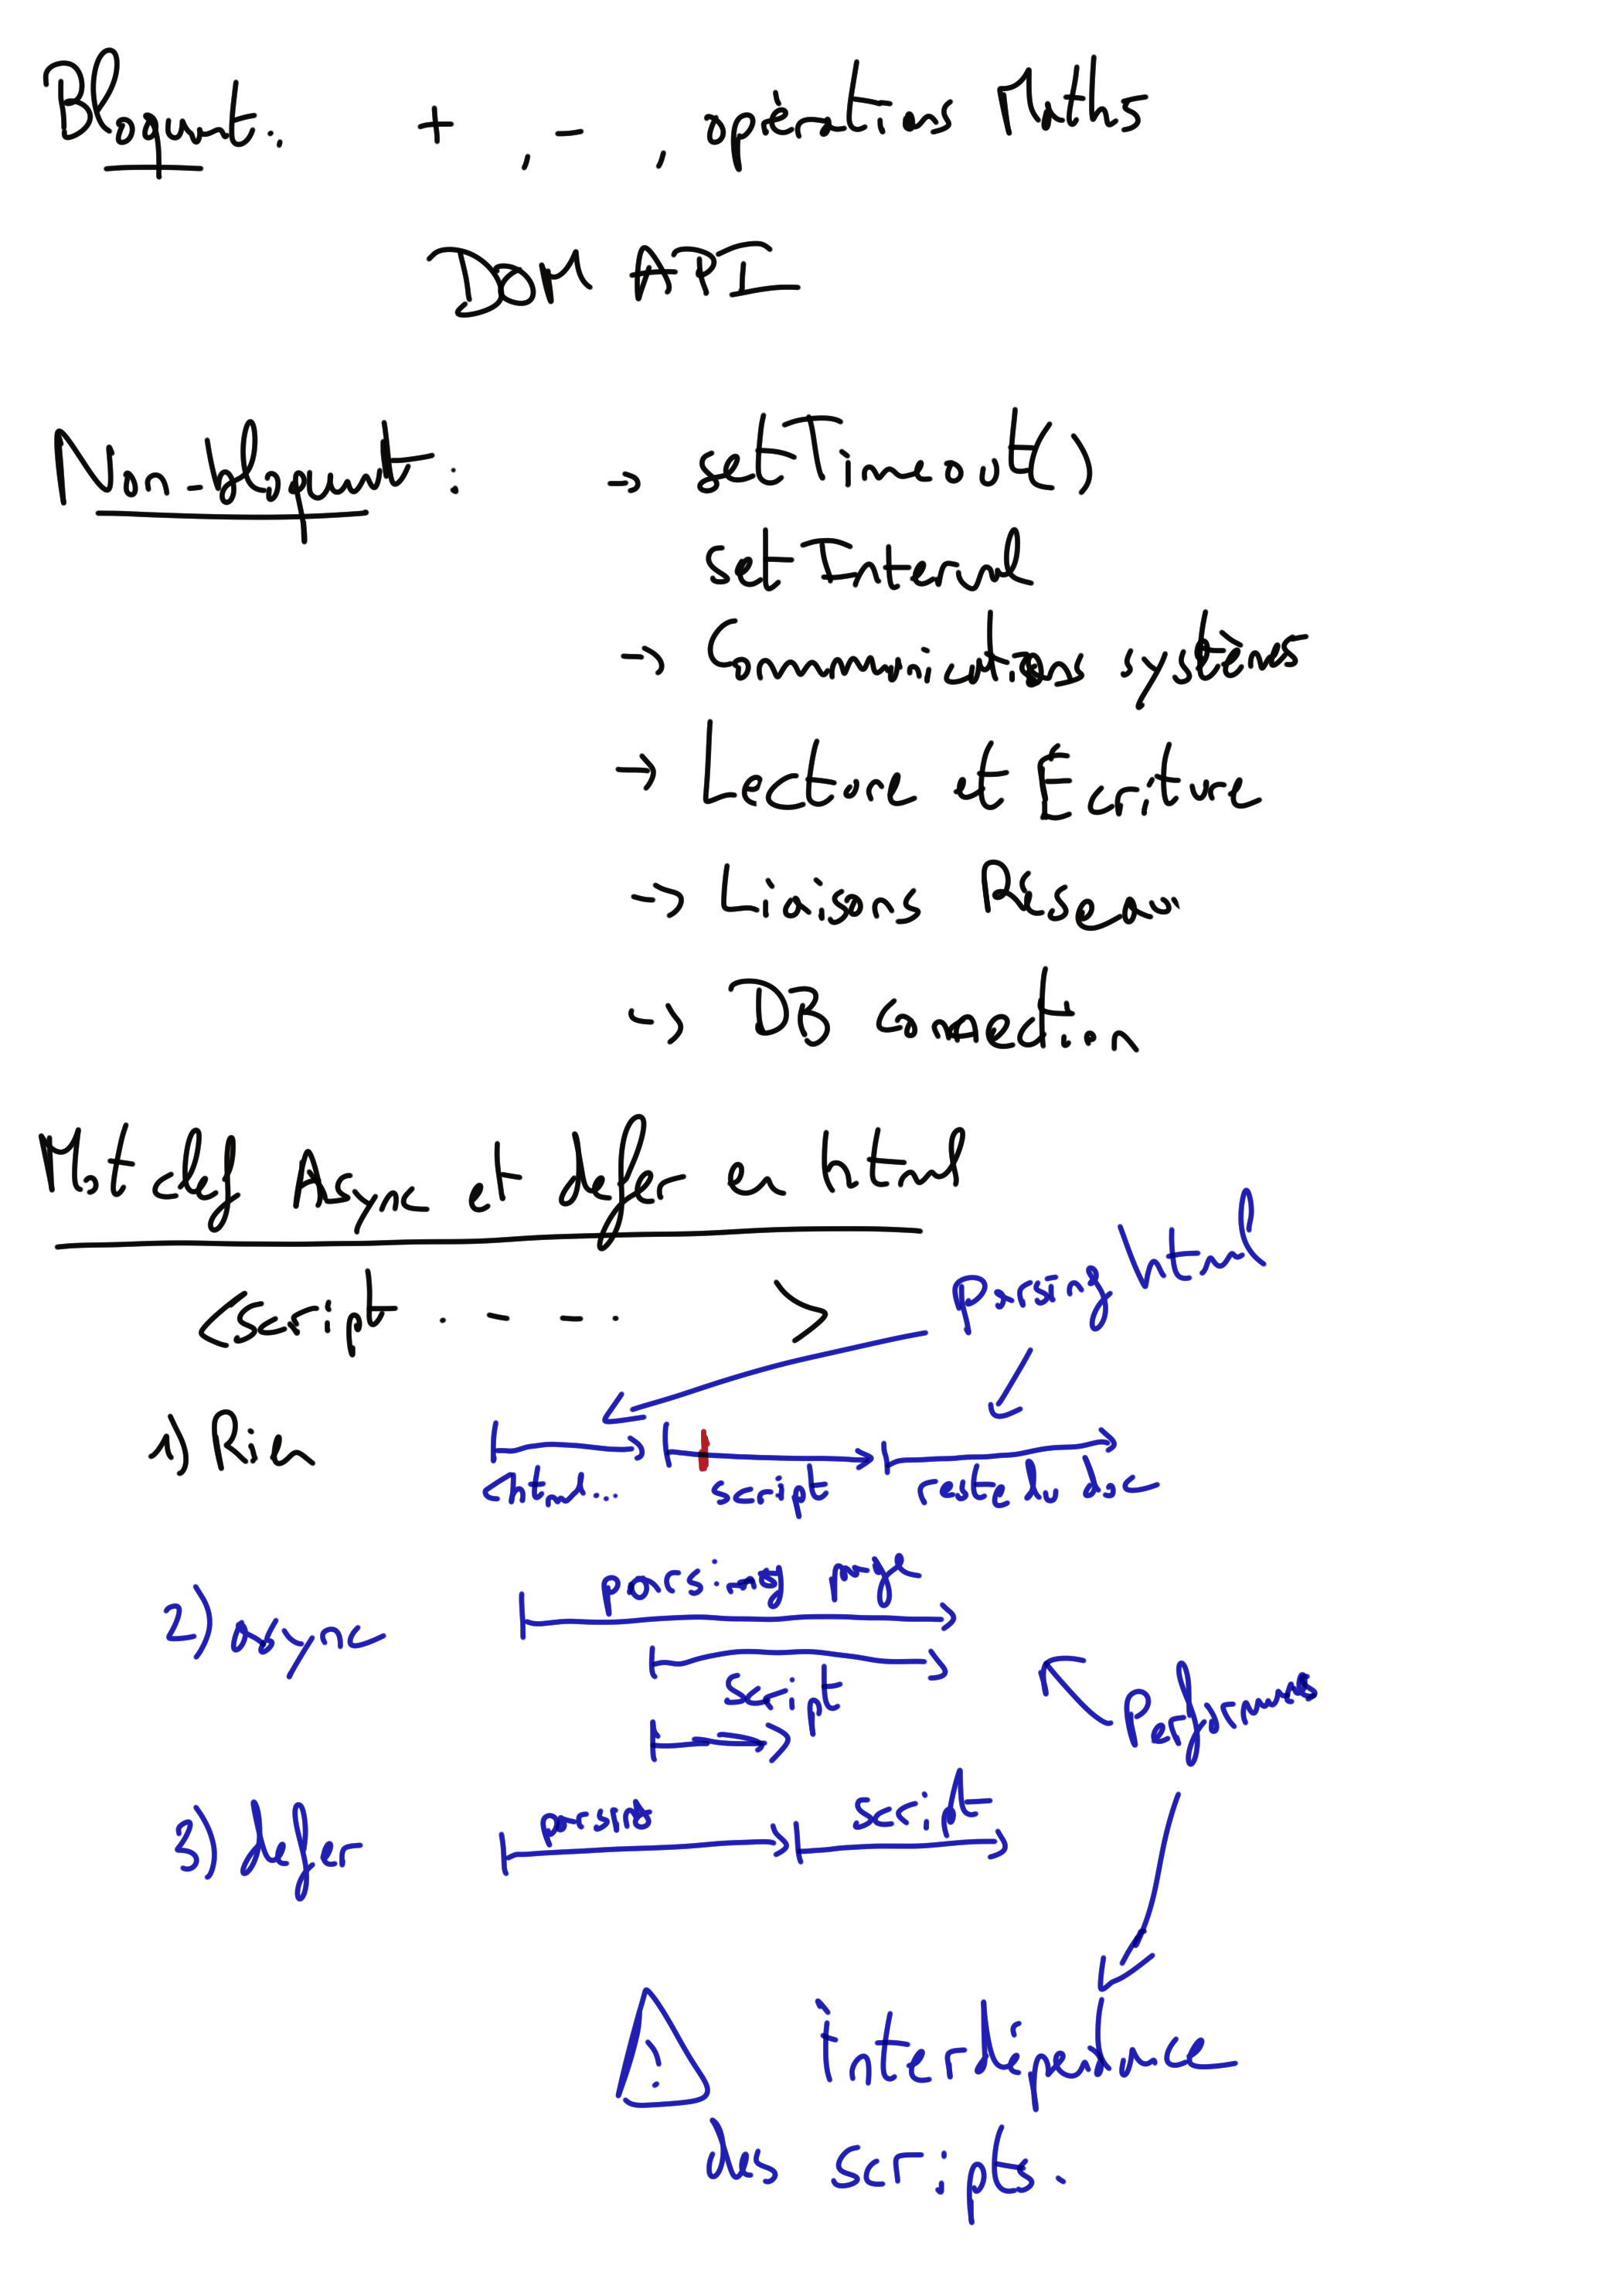 Bloquant : + , - , opérations Maths
DOM API
Non-bloquant : → setTimeout()
setInterval
→ Communications systèmes
→ Lecture et Écriture
→ Liaisons Réseaux
→ DB connection
Mot clef Async et defer en html
<script . - - . >
parsing html
1) Rien
<html... script reste du doc
parsing page
2) async
script
Performances
3) defer
parsing script
! interdépendance
des scripts.